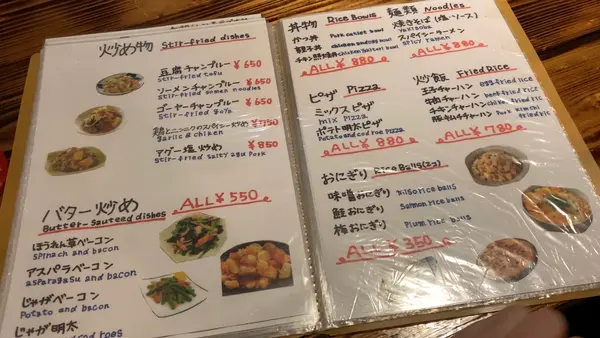 炒め物 Stir-fried dishes
豆腐チャンプルー ¥650
Stir-fried tofu
ソーメンチャンプルー ¥650
Stir-fried somen noodles
ゴーヤーチャンプルー ¥650
Stir-fried goya
鶏とニンニクのスパイシー炒め ¥750
garlic & chiken
アグー塩炒め ¥850
Stir-fried salty agu Pork
バター炒め ALL¥550
Butter-Sauteed dishes
ほうれん草ベーコン
spinach and bacon
アスパラベーコン
asparagasu and bacon
じゃがベーコン
Potato and bacon
じゃが明太
丼物 Rice Bowls
かつ丼 Pork cutlet bowl
親子丼
ALL¥ 880
麺類 Noodles
焼きそば(塩・ソース)
Yakisoba
スパイシーラーメン
Spicy ramen
ALL¥ 880
ピザ Pizza
ミックスピザ
mix Pizza
ポテト明太ピザ
Potato and cod roe Pizza
ALL¥ 880
炒飯 Fried Rice
玉子チャーハン egg fried rice
牛肉チャーハン beef fried rice
チキンチャーハン chicken fried rice
豚キムチチャーハン Pork kimchi fried rice
ALL¥ 780
おにぎり Rice Balls(2コ)
味噌おにぎり Miso rice balls
鮭おにぎり Salmon rice balls
梅おにぎり Plum rice balls
ALL¥ 350